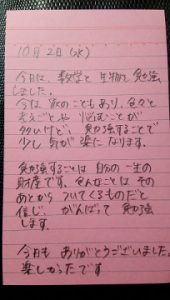 10月2日(水)
今日は、数学と生物を勉強
しました。
今は 秋のこともあり、色々と
考えごとや 悩むことが
多いけど、勉強することで
少し気が楽になります。
勉強することは 自分の一生の
財産です。色んなことは その
あとから ついてくるものだと
信じ、がんばって 勉強
します。
今日も ありがとうございました。
楽しかったです